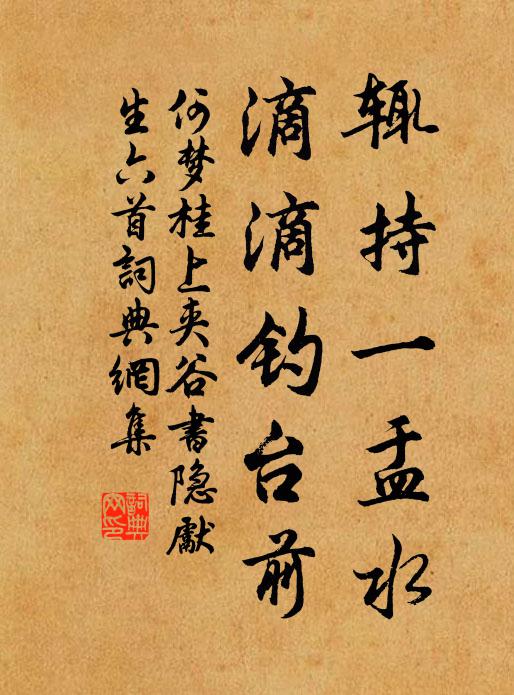 辄持一盂水
滴滴钓台前
何梦桂上夹谷書隐獻
生六首詞典網集
詞典
网印